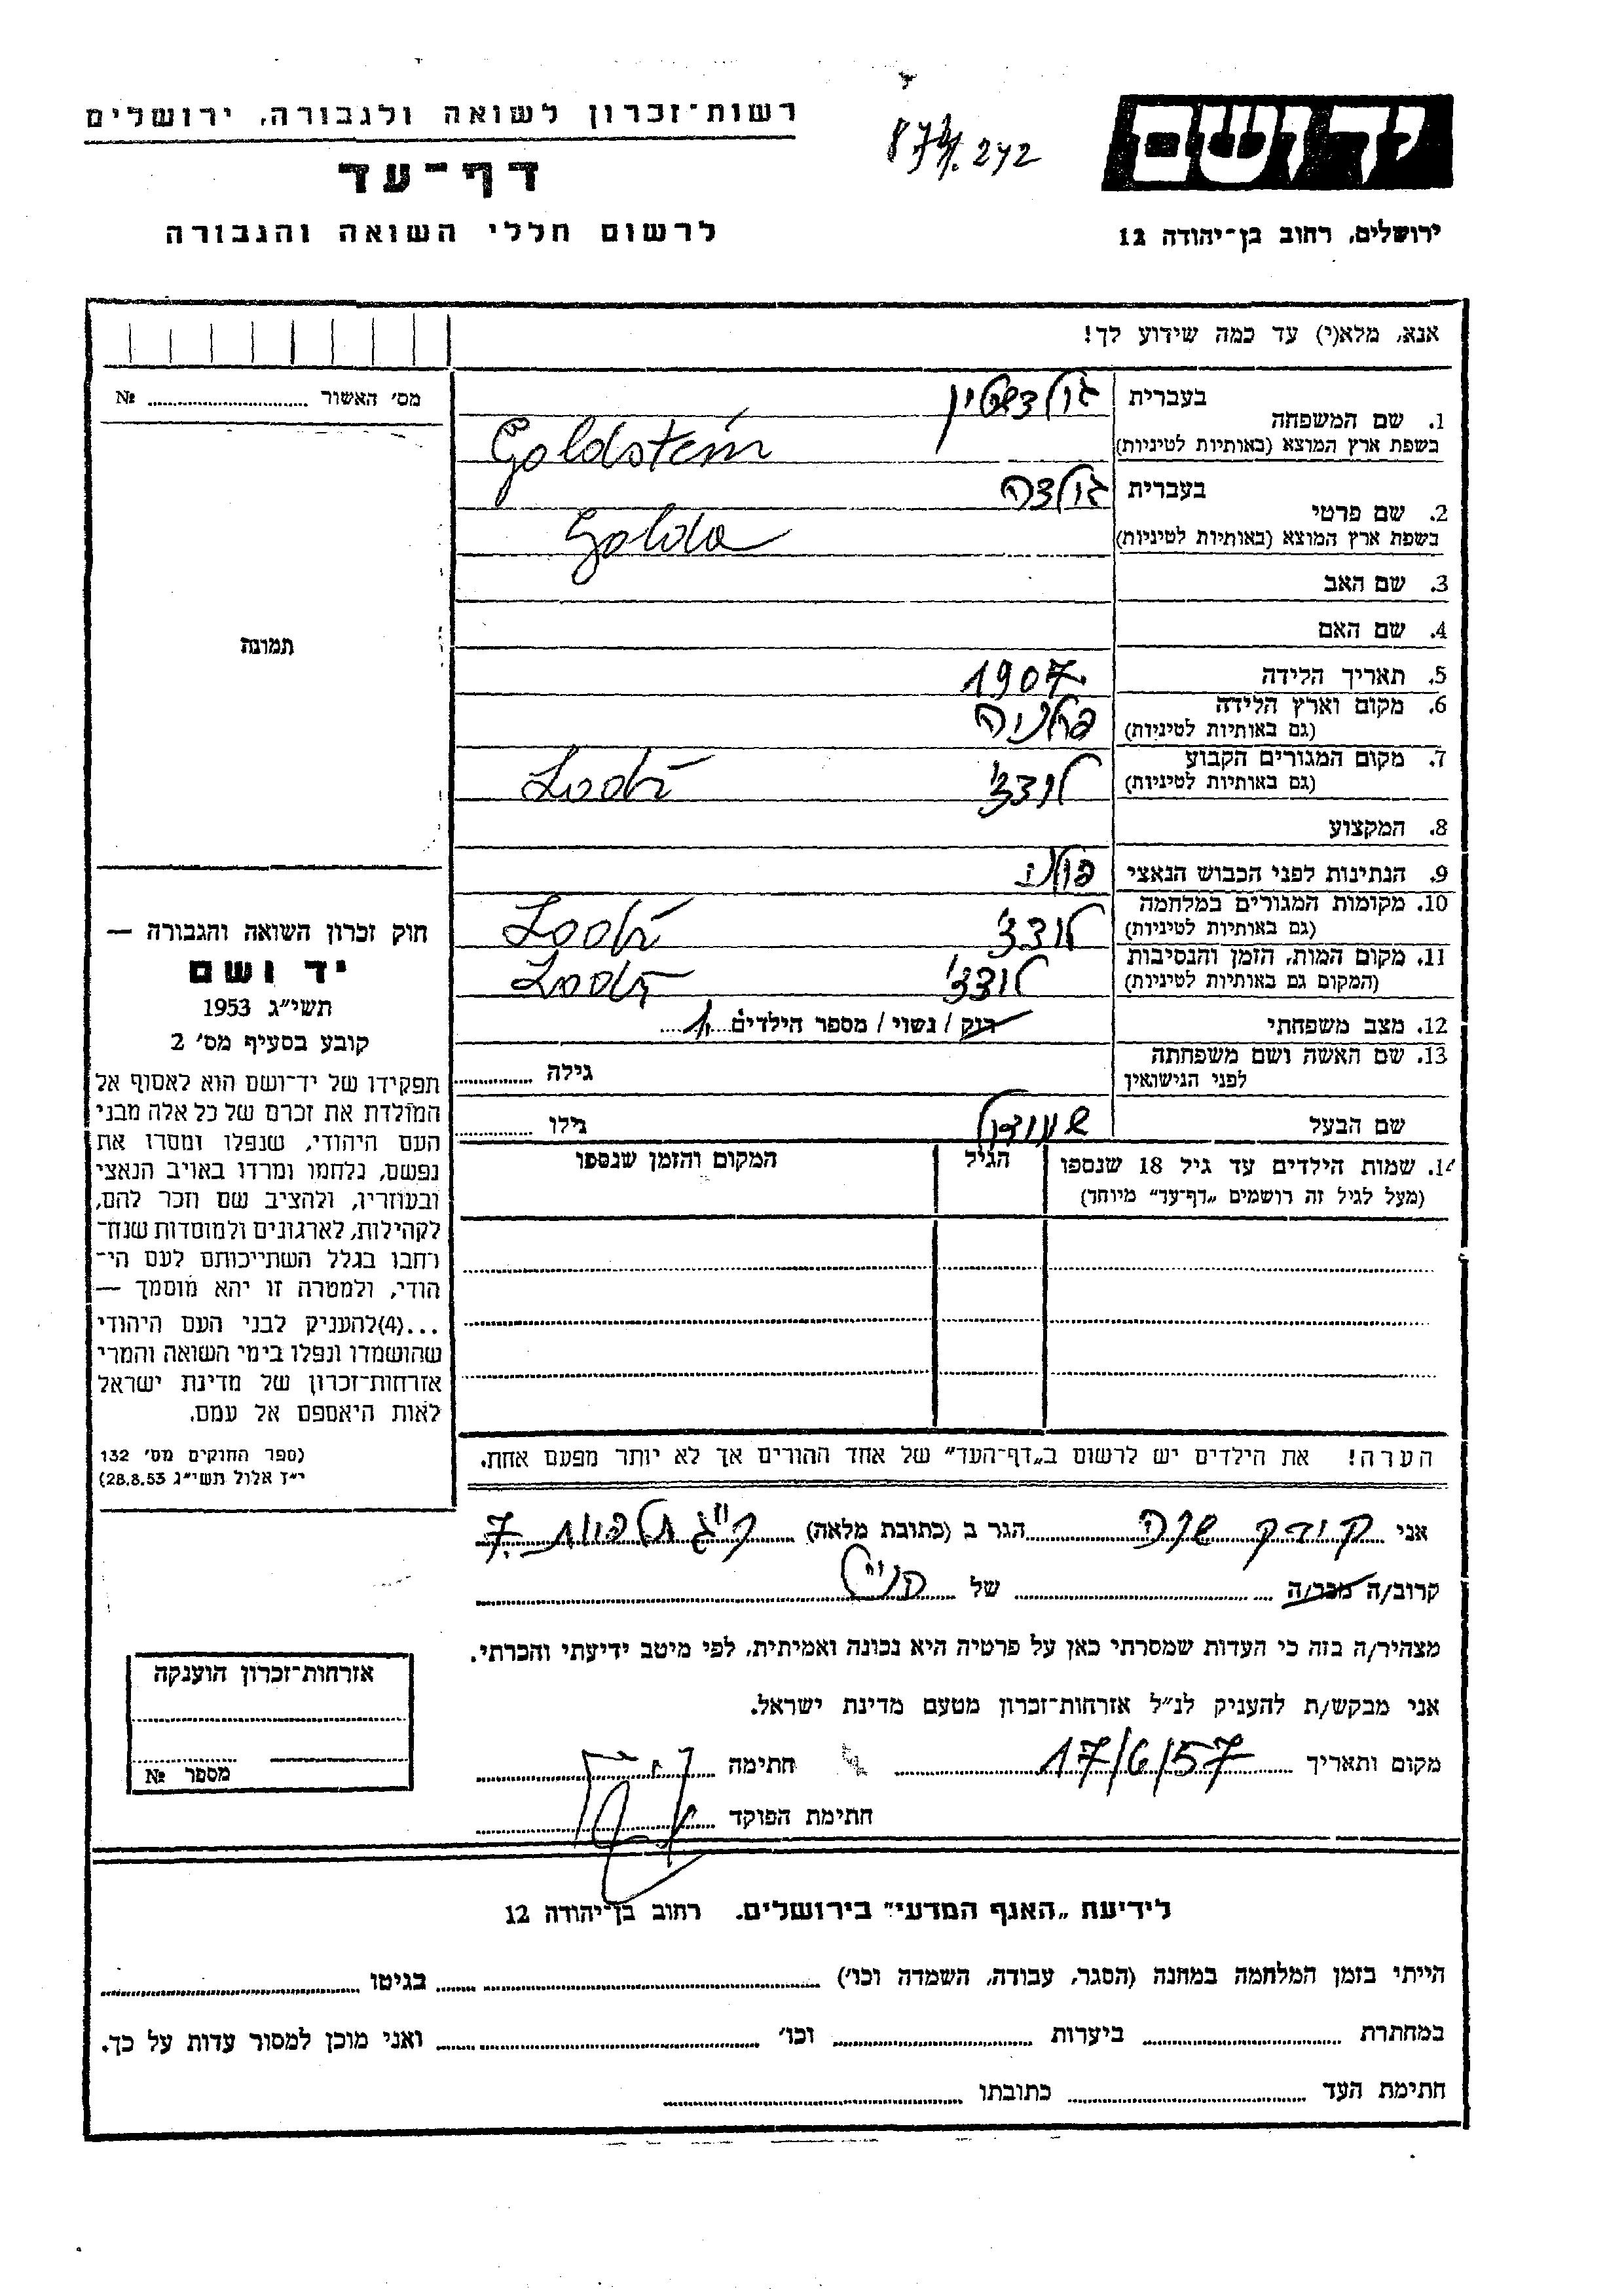 רשות-זכרון לשואה ולגבורה, ירושלים
דף-עד
לרשום חללי השואה והגבורה
242
ידושם
ירושלים, רחוב בן-יהודה 12
אנא, מלא(י) עד כמה שידוע לך!
מס׳ האשור № 
תמונה
1. שם המשפחה בעברית גולדשטיין
בשפת ארץ המוצא (באותיות לטיניות) Goldstein
2. שם פרטי בעברית גולדה
בשפת ארץ המוצא (באותיות לטיניות) Golda
3. שם האב
4. שם האם
5. תאריך הלידה 1907
6. מקום וארץ הלידה פולניה
(גם באותיות לטיניות)
7. מקום המגורים הקבוע לודז׳ Lodź
(גם באותיות לטיניות)
8. המקצוע
9. הנתינות לפני הכבוש הנאצי פולני
10. מקומות המגורים במלחמה לודז׳ Lodź
(גם באותיות לטיניות)
11. מקום המות, הזמן והנסיבות לודז׳ Lodź
(המקום גם באותיות לטיניות)
12. מצב משפחתי רוק / נשוי / מספר הילדים 1
13. שם האשה ושם משפחתה
לפני הנישואין גילה
שם הבעל גילו
14. שמות הילדים עד גיל 18 שנספו הגיל המקום והזמן שנספו
(מעל לגיל זה רושמים „דף-עד״ מיוחד)
הערה! את הילדים יש לרשום ב„דף-העד״ של אחד ההורים אך לא יותר מפעם אחת.
חוק זכרון השואה והגבורה —
יד ושם
תשי״ג 1953
קובע בסעיף מס׳ 2
תפקידו של יד-ושם הוא לאסוף אל
המולדת את זכרם של כל אלה מבני
העם היהודי, שנפלו ומסרו את
נפשם, נלחמו ומרדו באויב הנאצי
ובעוזריו, ולהציב שם וזכר להם,
לקהילות, לארגונים ולמוסדות שנח־
רחבו בגלל השתייכותם לעם הי־
הודי, ולמטרה זו יהא מוסמך —
...(4)להעניק לבני העם היהודי
שהושמדו ונפלו בימי השואה והמרי
אזרחות-זכרון של מדינת ישראל
לאות היאספם אל עמם.
(ספר החוקים מס׳ 132
י״ז אלול תשי״ג 28.8.53)
אני שרה הגר ב (כתובת מלאה) תלפיות 7
קרוב/ה מכר/ה של הנ״ל
מצהיר/ה בזה כי העדות שמסרתי כאן על פרטיה היא נכונה ואמיתית, לפי מיטב ידיעתי והכרתי.
אני מבקש/ת להעניק לנ״ל אזרחות-זכרון מטעם מדינת ישראל.
מקום ותאריך 17/6/57 חתימה
חתימת הפוקד
אזרחות-זכרון הוענקה
מספר №
לידיעת „האגף המדעי״ בירושלים. רחוב בן-יהודה 12
הייתי בזמן המלחמה במחנה (הסגר, עבודה, השמדה וכו׳) בגיטו
במחתרת ביערות וכו׳ ואני מוכן למסור עדות על כך.
חתימת העד כתובתו